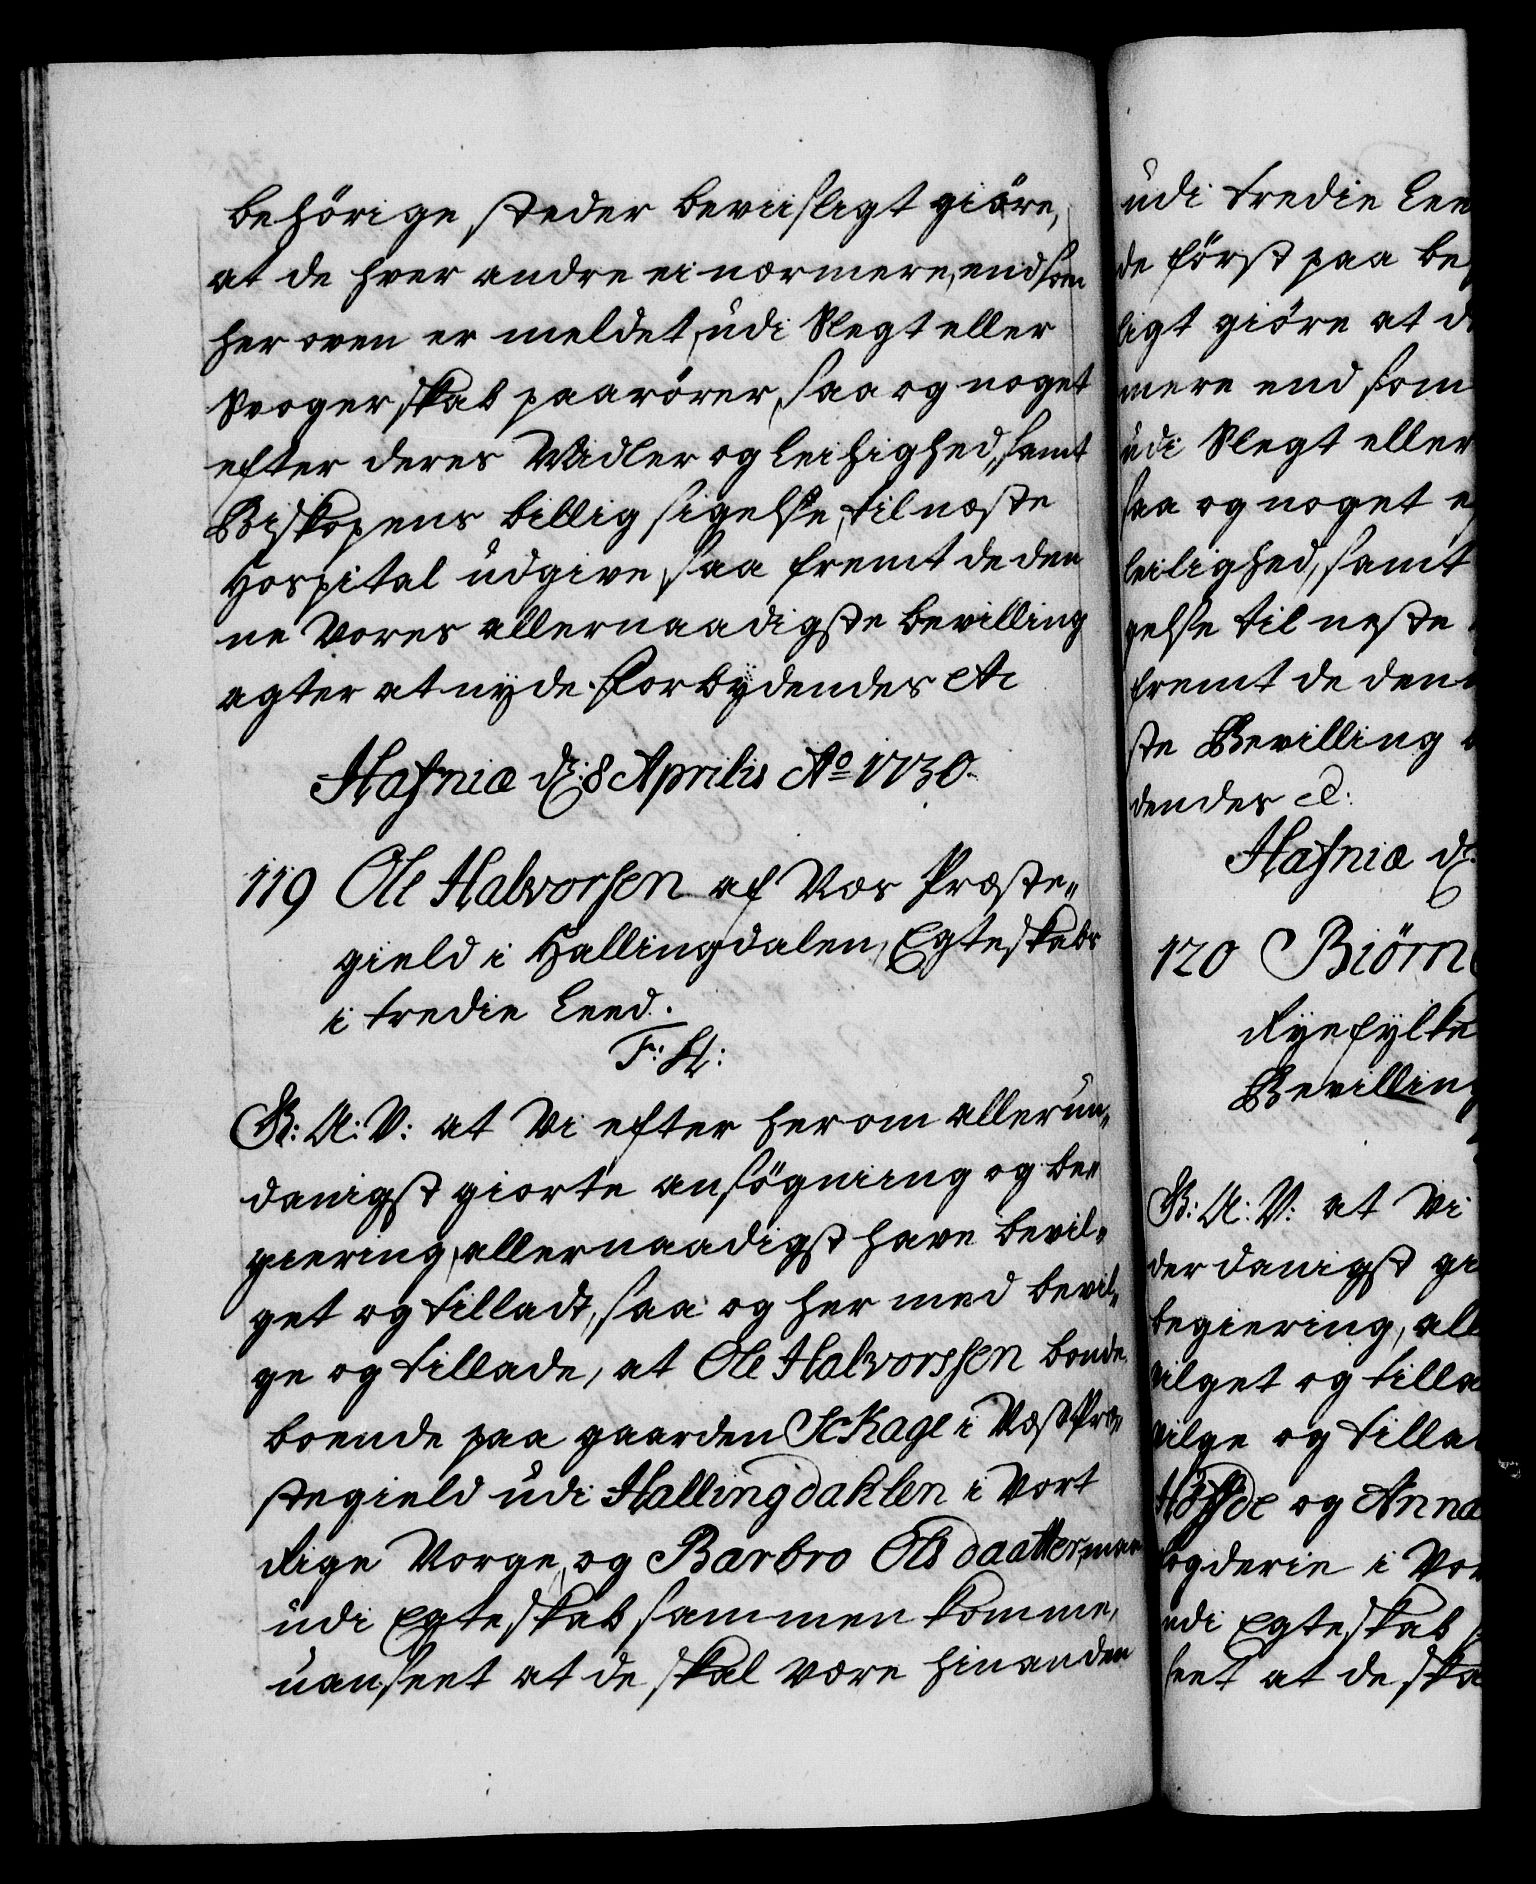 behörige steder beviisligt giöre,
at de hver andre ei nærmere, end som
her oven er meldet, udi Slegt eller
Svogerskab paarörer, saa og noget
efter deres Midler og Leilighed, samt
Biskopens billig sigelse, til næste
Hospital udgive, saa fremt de den
ne Vores allernaadigste bevilling
agter at nyde. Forbydendes etc
Hafniæ d: 8 Aprilis Ao 1730.
119 Ole Halvorsen af Næs Præste„
gield i Hallingdalen, Egteskabs
i tredie Leed.
F: St:
G: A: V: at Vi efter herom allerun„
danigst giorte ansögning og be„
giering, allernaadigst have bevil„
get og tilladt, saa og her med bevil„
ge og tillade, at Ole Halvorssen bonde
boende paa gaarden Schage i Næss Præ„
stegield udi Hallingdahlen i Vort
Rige Norge, og Barbro Olsdaatter, maae
udi Egteskab sammen komme,
uanseet at de skal være hinanden
udi tredie Lee
de först paa be
ligt giöre at d
mere end som
udi Slegt eller
saa og noget e
leilighed, samt
gelse til neste
fremt de denn
ste Bevilling
dendes etc:
Hafniæ d:
120 Biörn
Ryefylke
Bevilling
G: A: V: at Vi
derdanigst gi
begiering, all
vilget og tilla
vilge og tilla
og Anna
fogderie i Nor
udi Egteskab
seet at de ska